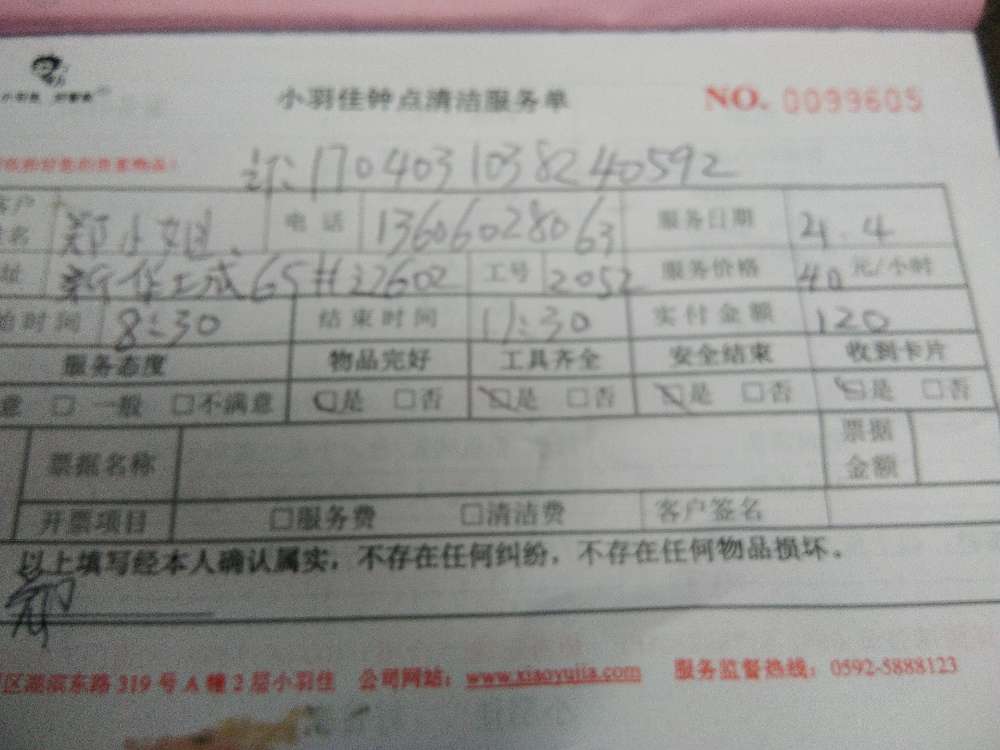 小羽佳钟点清洁服务单 NO. 0099605
订:170403103824​0592
郑小姐 电话 13606028063 服务日期 4.4
址 新华工成65#2602 工号 2052 服务价格 40元/小时
始时间 8:30 结束时间 11:30 实付金额 120
服务态度 物品完好 工具齐全 安全结束 收到卡片
意 □ 一般 □不满意 □是 □否 □是 □否 □是 □否 □是 □否
票据名称 票据金额
开票项目 □服务费 □清洁费 客户签名
以上填写经本人确认属实，不存在任何纠纷，不存在任何物品损坏。
郑
区湖滨东路 319 号 A 幢 2 层小羽佳 公司网站：www.xiaoyujia.com 服务监督热线：0592-5888123